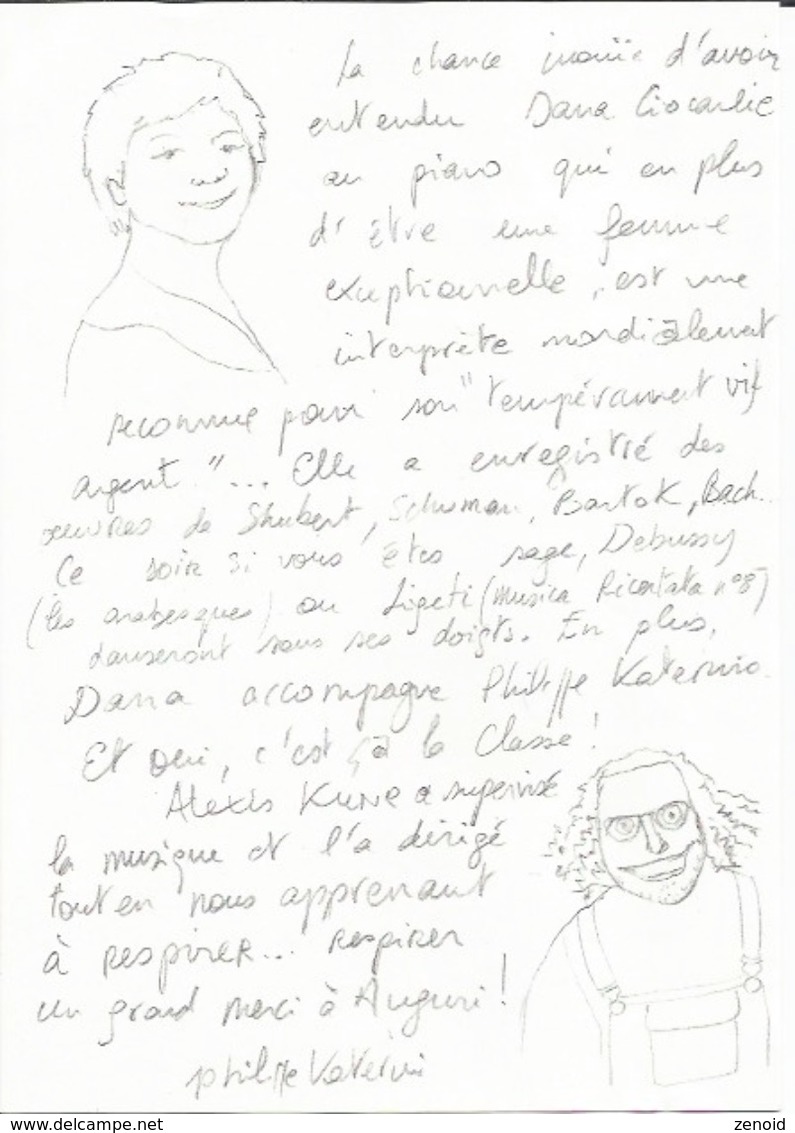 La chance inouïe d'avoir
entendu Dana Ciocarlie
au piano qui en plus
d'être une femme
exceptionnelle, est une
interprète mondialement
reconnue pour son "tempérament vif
argent"... Elle a enregistré des
œuvres de Shubert, Schuman, Bartok, Bach.
Ce soir si vous êtes sage, Debussy
(les arabesques) ou Ligeti (Musica Ricertata n°8)
danseront sous ses doigts. En plus,
Dana accompagne Philippe Katerine.
Et oui, c'est ça la Classe!
Alexis Kune a supervisé
la musique et l'a dirigé
tout en nous apprenant
à respirer... Respirer
un grand merci à Auguri!
philippe Katerine
zenoid